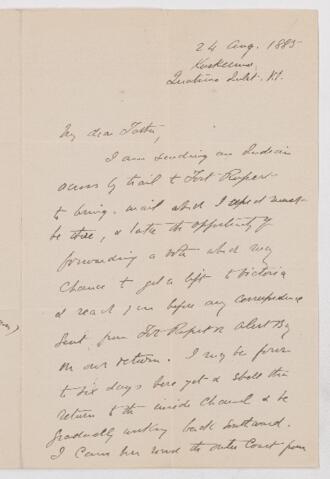 24 Aug. 1885
Koskeemo
Quatsino Inlet. V.I.
My dear
I am sending an Indian
across by trail to Fort Rupert
to bring mail which I expect must
be there, & take the opportunity of
forwarding a note which may
chance to get a lift to Victoria
& reach you before any correspondence
sent from Fort Rupert or Alert Bay
on our return. I may be four
to six days here yet & shall then
return to the inside Channel & be
gradually working back Southward.
I came here round the outer Coast from